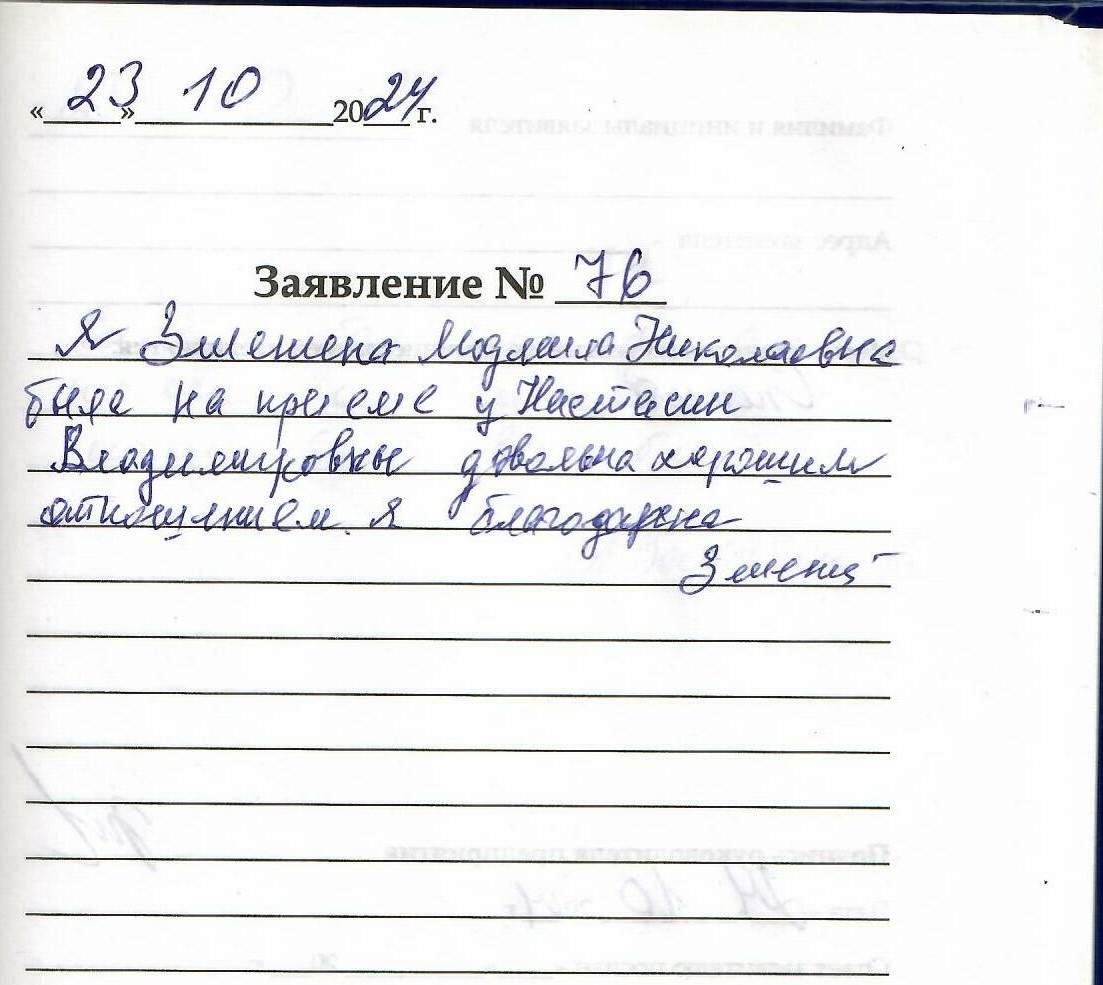 «23» 10 2024 г.
Заявление № 76
Я Людмила Николаевна
была на приеме у Настасии
Владимировны довольна хорошим
отношением. Я благодарна